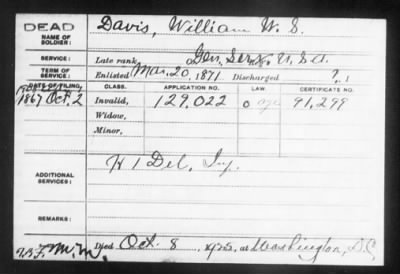 DEAD
NAME OF SOLDIER:
Davis, William W. S.
SERVICE:
Late rank, Gen. Serv. U.S.A.
TERM OF SERVICE:
Enlisted Mar. 20, 1871 Discharged ?, 1
DATE OF FILING. CLASS. APPLICATION NO. LAW. CERTIFICATE NO.
1867 Oct. 2 Invalid, 129,022 91,299
Widow,
Minor,
ADDITIONAL SERVICES:
H 1 Del. Inf.
REMARKS:
Died Oct. 8 at Washington, D.C.